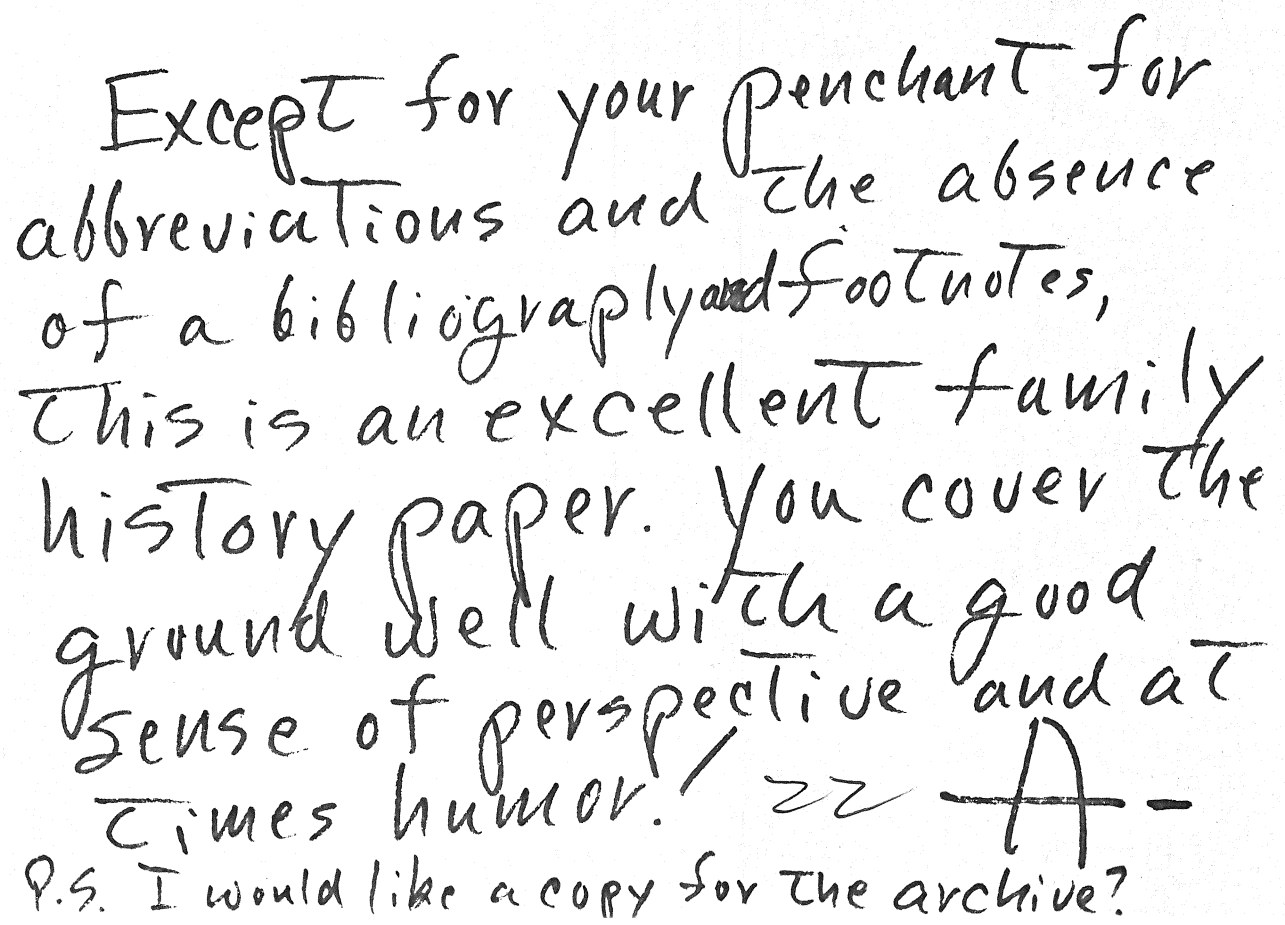 Except for your penchant for
abbreviations and the absence
of a bibliograply and footnotes,
this is an excellent family
history paper. You cover the
ground well with a good
sense of perspective and at
times humor! A-
P.S. I would like a copy for the archive?